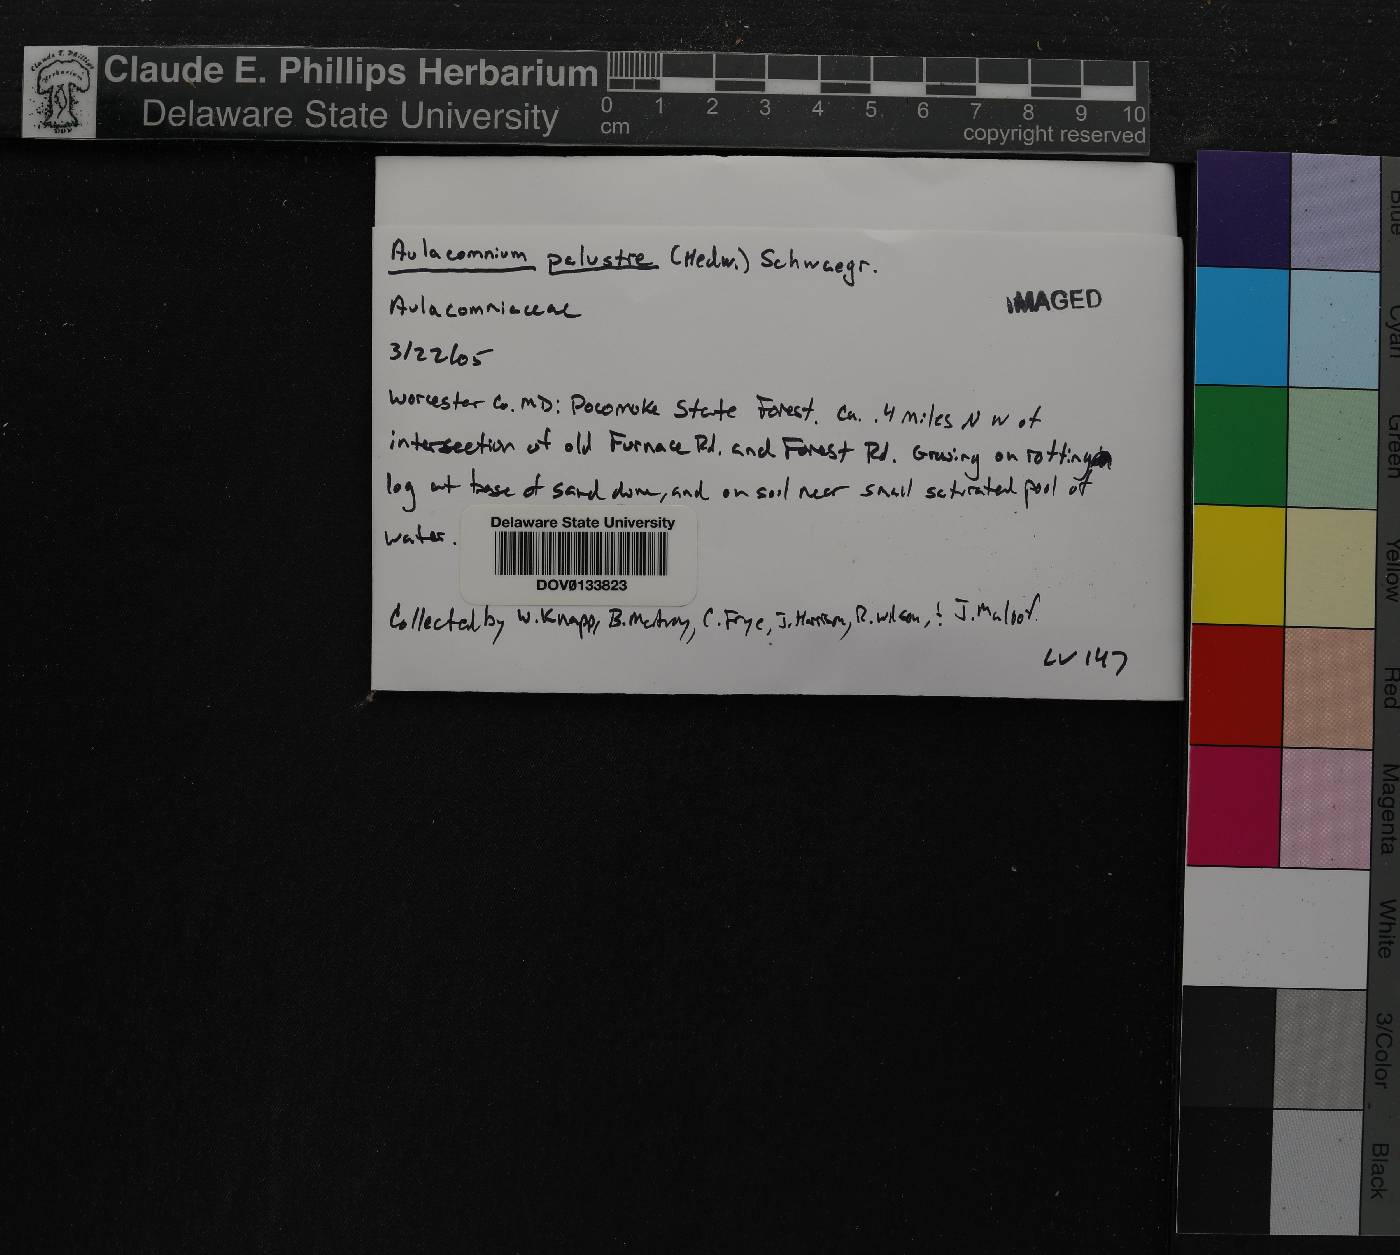 Claude E. Phillips Herbarium
Delaware State University
0 1 2 3 4 5 6 7 8 9 10
cm
copyright reserved
Aulacomnium palustre (Hedw.) Schwaegr.
Aulacomniaceae
IMAGED
3/22/05
Worcester Co. MD: Pocomoke State Forest. Ca. .4 miles NW of
intersection of old Furnace Rd. and Forest Rd. Growing on rotting
log at base of sand dune, and on soil near small saturated pool of
water.
Delaware State University
DOV0133823
Collected by W. Knapp, B. McAvoy, C. Frye, J. Harrison, R. Wilson, & J. Maloof.
LV 147
Blue
Cyan
Green
Yellow
Red
Magenta
White
3/Color
Black